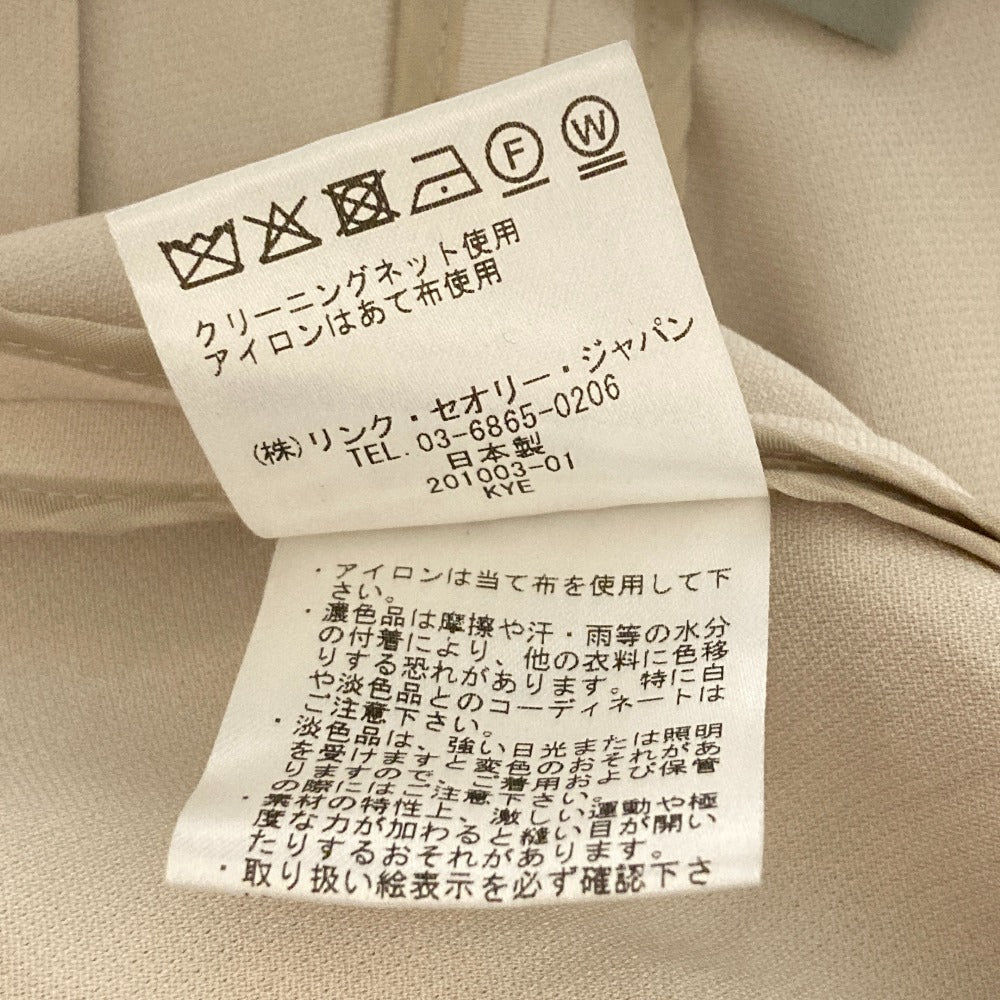 F W
クリーニングネット使用
アイロンはあて布使用
(株)リンク・セオリー・ジャパン
TEL. 03-6865-0206
日本製
201003-01
KYE
・アイロンは当て布を使用して下
さい。
・濃色品は摩擦や汗・雨等の水分
の付着により、他の衣料に色移
りする恐れがあります。特に白
や淡色品とのコーディネートは
ご注意下さい。
・淡色品は、強い日光または照明
を受けますと変色のおそれがあ
りますので、ご着用および保管
の際にはご注意下さい。
・素材の特性上、激しい運動や極
度な力が加わると縫い目が開い
たりするおそれがあります。
・取り扱い絵表示を必ず確認下さ